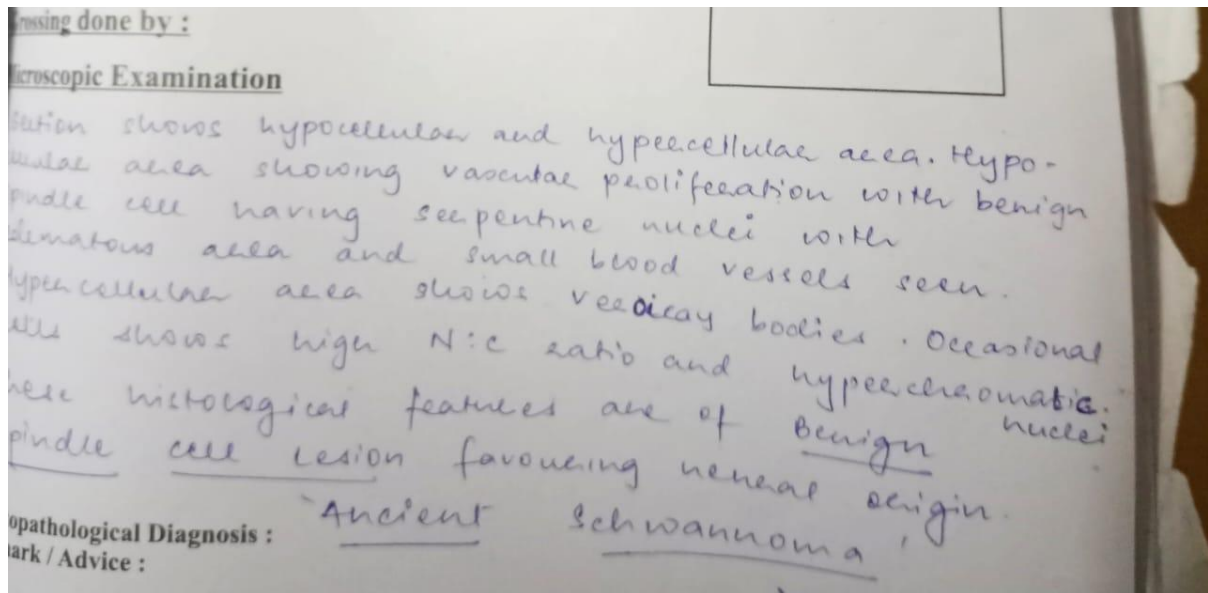 rossing done by :
icroscopic Examination
Section shows hypocellular and hypercellular area. Hypo-
cellular area showing vascular proliferation with benign
pindle cell having serpentine nuclei with
dematous area and small blood vessels seen.
Hypercellular area shows verocay bodies. Occasional
cells shows high N:C ratio and hyperchromatic.
nuclei
hese histological features are of Benign
pindle cell lesion favouring neural origin.
'Ancient Schwannoma'
opathological Diagnosis :
ark / Advice :